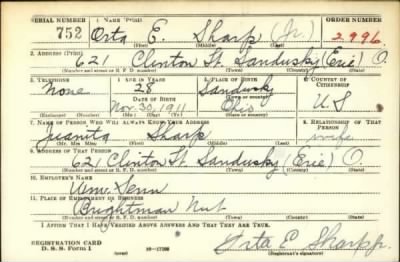 SERIAL NUMBER 1. NAME (Print) ORDER NUMBER
752 Orta E. Sharp (Jr.) 2996
(First) (Middle) (Last)
2. ADDRESS (Print)
621 Clinton St. Sandusky (Erie) O.
(Number and street or R. F. D. number) (Town) (County) (State)
3. TELEPHONE 4. AGE IN YEARS 5. PLACE OF BIRTH 6. COUNTRY OF CITIZENSHIP
None 28 Sandusky
DATE OF BIRTH (Town or county)
Nov. 30, 1911 Ohio U S
(Exchange) (Number) (Mo.) (Day) (Yr.) (State or country)
7. NAME OF PERSON WHO WILL ALWAYS KNOW YOUR ADDRESS 8. RELATIONSHIP OF THAT PERSON
Juanita Sharp wife
(Mr., Mrs., Miss) (First) (Middle) (Last)
9. ADDRESS OF THAT PERSON
621 Clinton St. Sandusky (Erie) O.
(Number and street or R. F. D. number) (Town) (County) (State)
10. EMPLOYER'S NAME
Wm. Senn
11. PLACE OF EMPLOYMENT OR BUSINESS
Brightman Nut
(Number and street or R. F. D. number) (Town) (County) (State)
I AFFIRM THAT I HAVE VERIFIED ABOVE ANSWERS AND THAT THEY ARE TRUE.
REGISTRATION CARD
D. S. S. Form 1 (over) Orta E Sharp Jr.
(Registrant's signature)